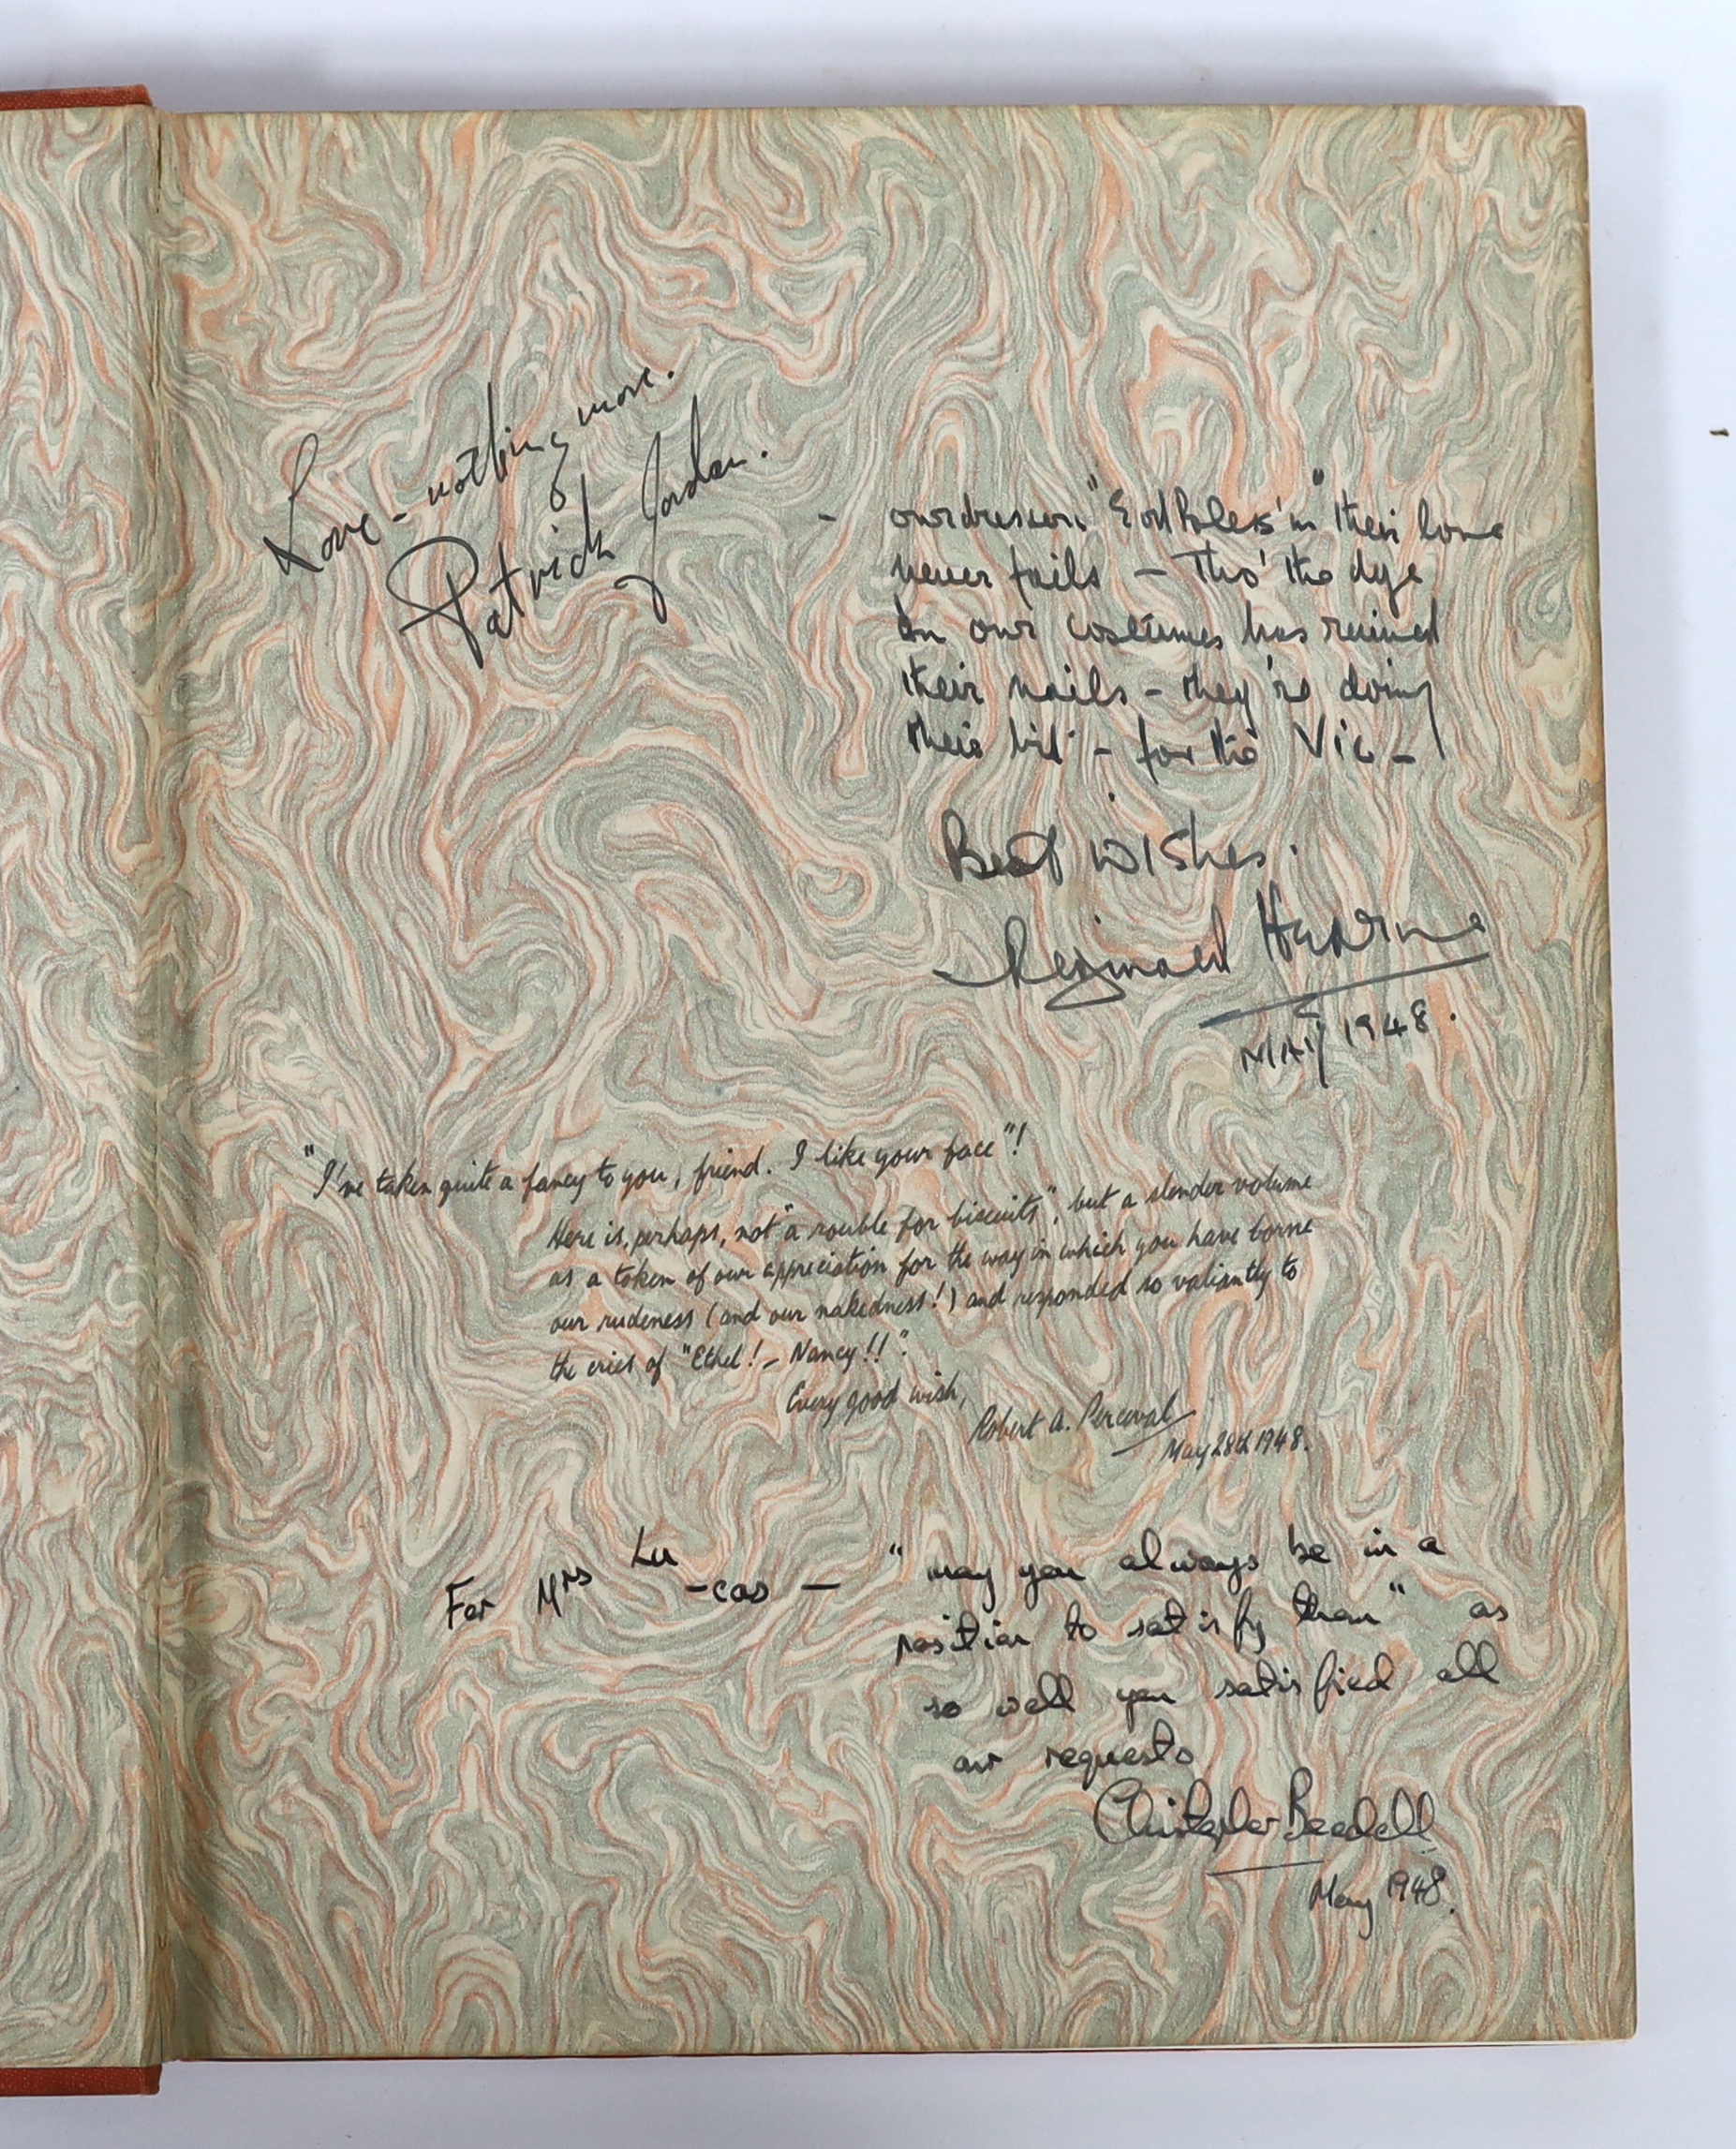 Love - nothing more.
Patrick Jordan.
- our dressers "God bless 'm" their love
never fails - Tho' the dye
in our costumes has ruined
their nails - they're doing
their bit - for the Vic -
Best wishes.
Reginald Hearne
MAY 1948.
"I've taken quite a fancy to you, friend. I like your face"!
Here is, perhaps, not "a rouble for biscuits", but a slender volume
as a token of our appreciation for the way in which you have borne
our rudeness (and our nakedness!) and responded so valiantly to
the cries of "Ethel! - Nancy!!".
Every good wish,
Robert A. Perceval
May 28th 1948.
For Mrs Lu
-cas - "may you always be in a
position to satisfy them" as
so well you satisfied all
our requests
Christopher Beedell
May 1948.